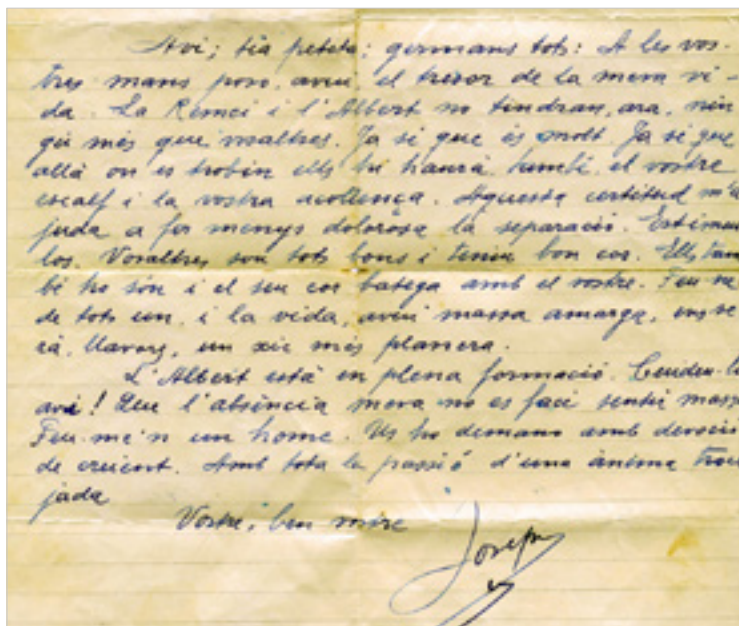 Avi; tia peteta; germans tots: A les vos-
tres mans poso, avui el tresor de la meva vi-
da. La Remei i l'Albert no tindran, ara, nin
gú més que vosaltres. Ja sé que és molt. Ja sé que
allà on es trobin ells hi haurà també el vostre
escalf i la vostra acollença. Aquesta certitud m'a
juda a fer menys dolorosa la separació. Estimeu
los. Vosaltres sou tots bons i teniu bon cor. Ells tam
bé ho són i el seu cor batega amb el vostre. Feu-ne
de tots un, i la vida, avui massa amarga, ens se
rà, llavors, un xic més planera.
L'Albert està en plena formació. Cuideu-lo
avi! Que l'absència meva no es faci sentir massa
Feu-me'n un home. Us ho demano amb devoció
de creient. Amb tota la passió d'una ànima
jada
Vostre, ben vostre
Josep